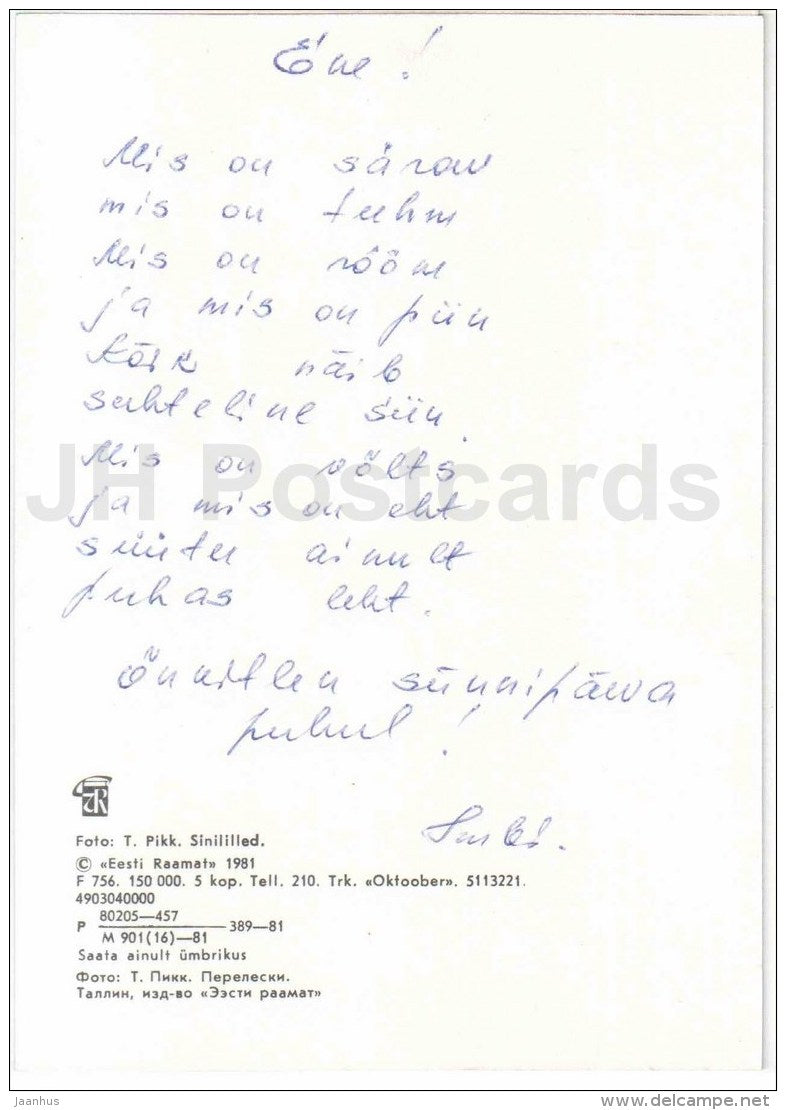 Ene!
Mis on särav
mis on tuhm
Mis on rõõm
ja mis on piin
Kõik näib
suhteline siin.
Mis on võlts
ja mis on eht
süütu ainult
puhas leht.
Õnnitlen sünnipäeva
puhul!
JH Postcards
TR
Foto: T. Pikk. Sinililled.
© «Eesti Raamat» 1981
F 756. 150 000. 5 kop. Tell. 210. Trk. «Oktoober». 5113221.
4903040000
P 80205—457
M 901(16)—81 389—81
Saata ainult ümbrikus
Фото: Т. Пикк. Перелески.
Таллин, изд-во «Ээсти раамат»
Jaanhus
www.delcampe.net